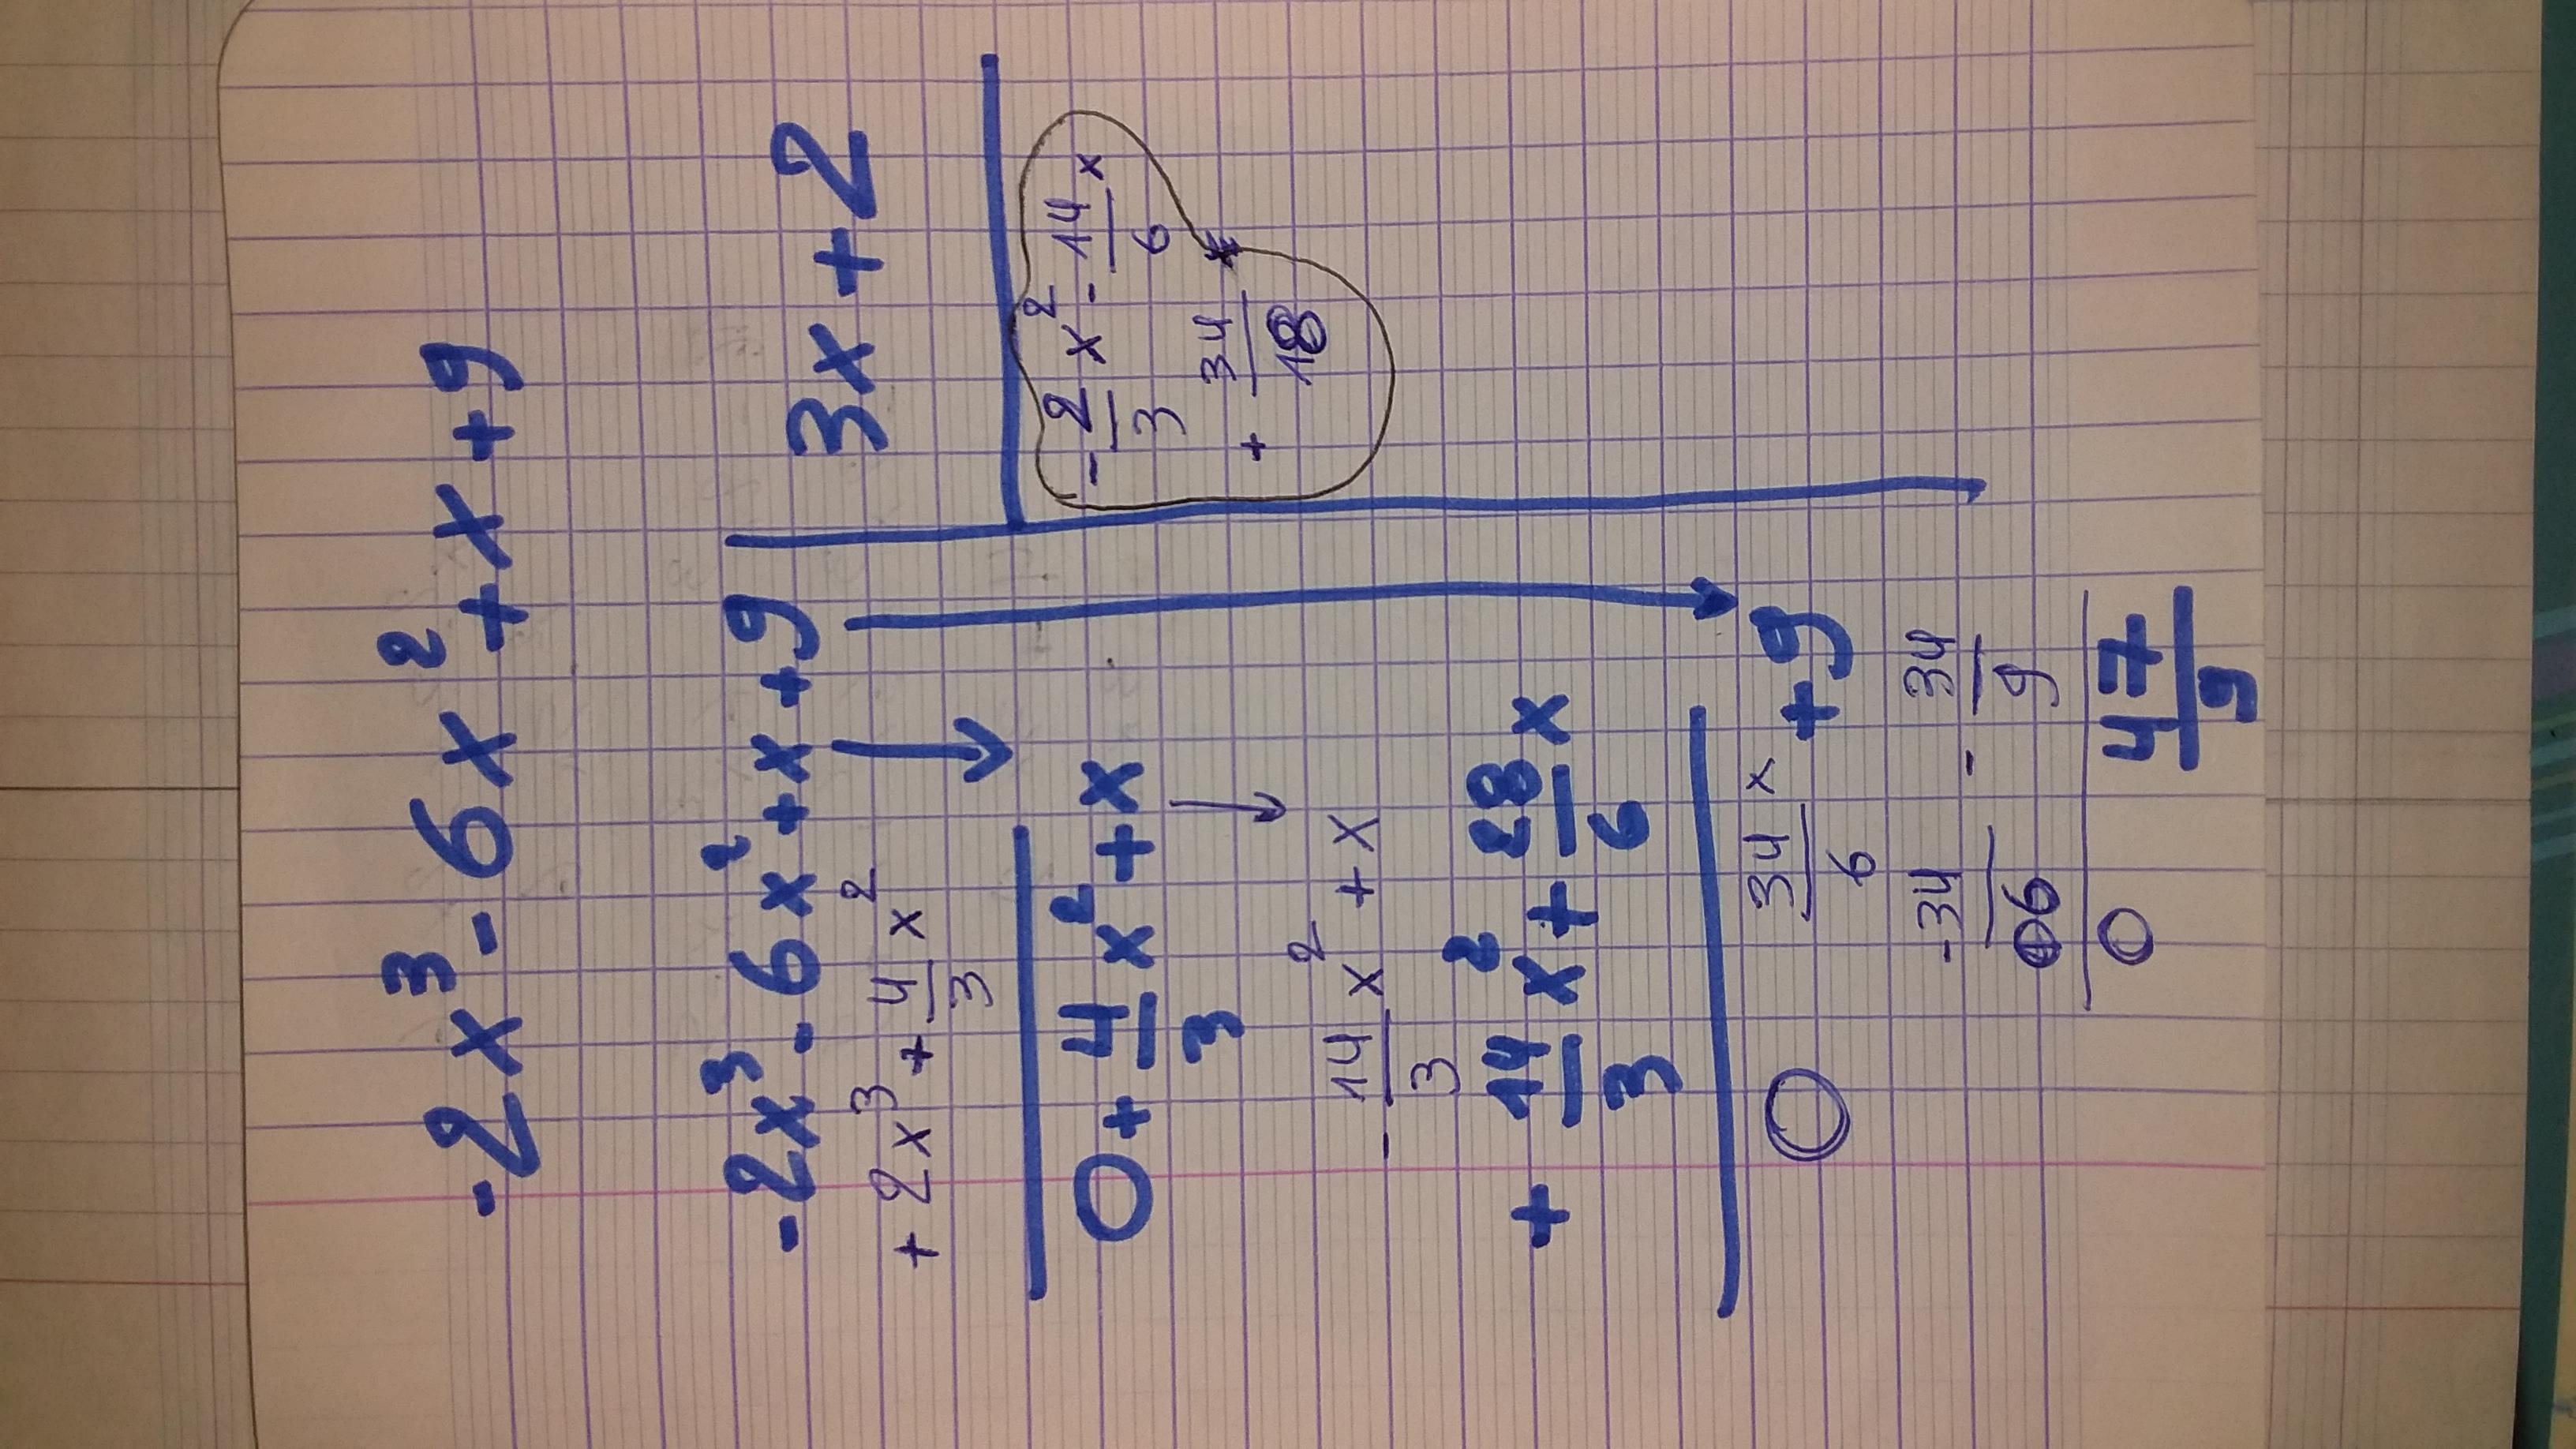 -2x³-6x²+x+9
-2x³-6x²+x+9
3x+2
+2x³+4/3x²
-2/3x²-14/6x
+34/18
0+4/3x²+x
-14/3x²+x
+14/3x²+28/6x
0 34/6x+9
-34/6 -34/9
0 47/9